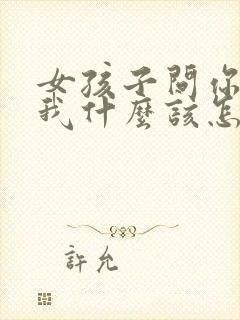 女孩子問你
我什麼該怎
許允